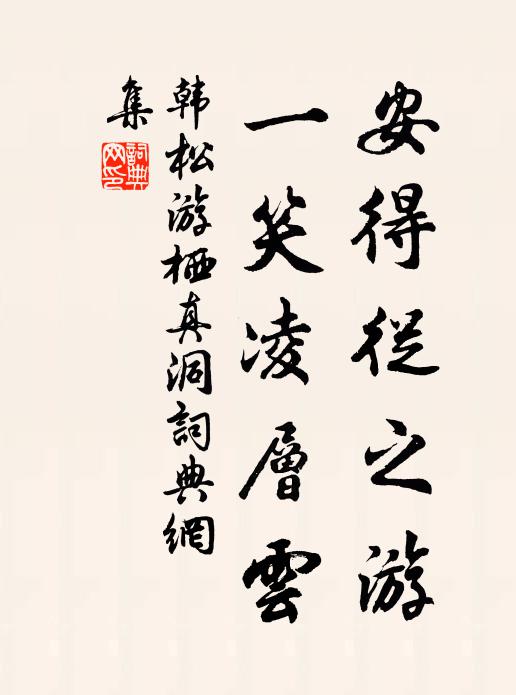 安得從之游
一笑凌層雲
韩松游栖真洞詞典網
集
詞典
网印